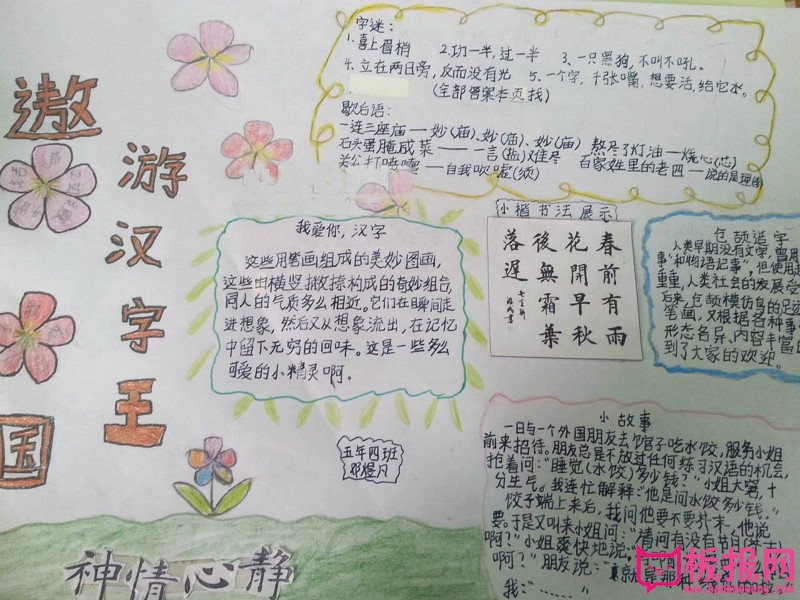 遨
游
汉
字
王
国
字迷：
1.喜上眉梢 2.功一半，过一半 3、一只黑狗，不叫不吼。
4.立在两日旁，反而没有光 5.一个字，千张嘴，想要活，给它水。
(全部答案本页找)
歇后语：
一连三座庙——妙(庙)、妙(庙)、妙(庙) 熬尽了灯油—烧心(芯)
石头蛋腌咸菜——一言(盐)难尽 百家姓里的老四—说的是理
关公打喷嚏——自我吹嘘(须)
我爱你，汉字
这些用笔画组成的美妙图画，
这些由横竖撇捺构成的奇妙组合，
同人的气质多么相近。它们在瞬间走
进想象，然后又从想象流出，在记忆
中留下无穷的回味。这是一些多么
可爱的小精灵啊。
小楷书法展示
春前有雨
花開早秋
後無霜葉
落遲
仓颉造字
人类早期没有文字，曾用
事"和物语记事"，但使用
重重，人类社会的发展受
后来，仓颉模仿鸟的足迹
笔画，又根据各种事
形态各异、内容丰富的
到了大家的欢迎。
五年四班
邓煜凡
小故事
一日与一个外国朋友去饭馆子吃水饺，服务小姐
前来招待。朋友总是不放过任何练习汉语的机会，
抢着问："睡觉(水饺)多少钱？"小姐大窘，十
分生气。我连忙解释："他是问水饺多少钱。"
饺子端上来后，我问他要不要芥末，他说
要。于是又叫来小姐问："请问有没有节目(芥末)
啊？"小姐爽快地说：
啊？"朋友说："
我："……"
神情心静
板报网